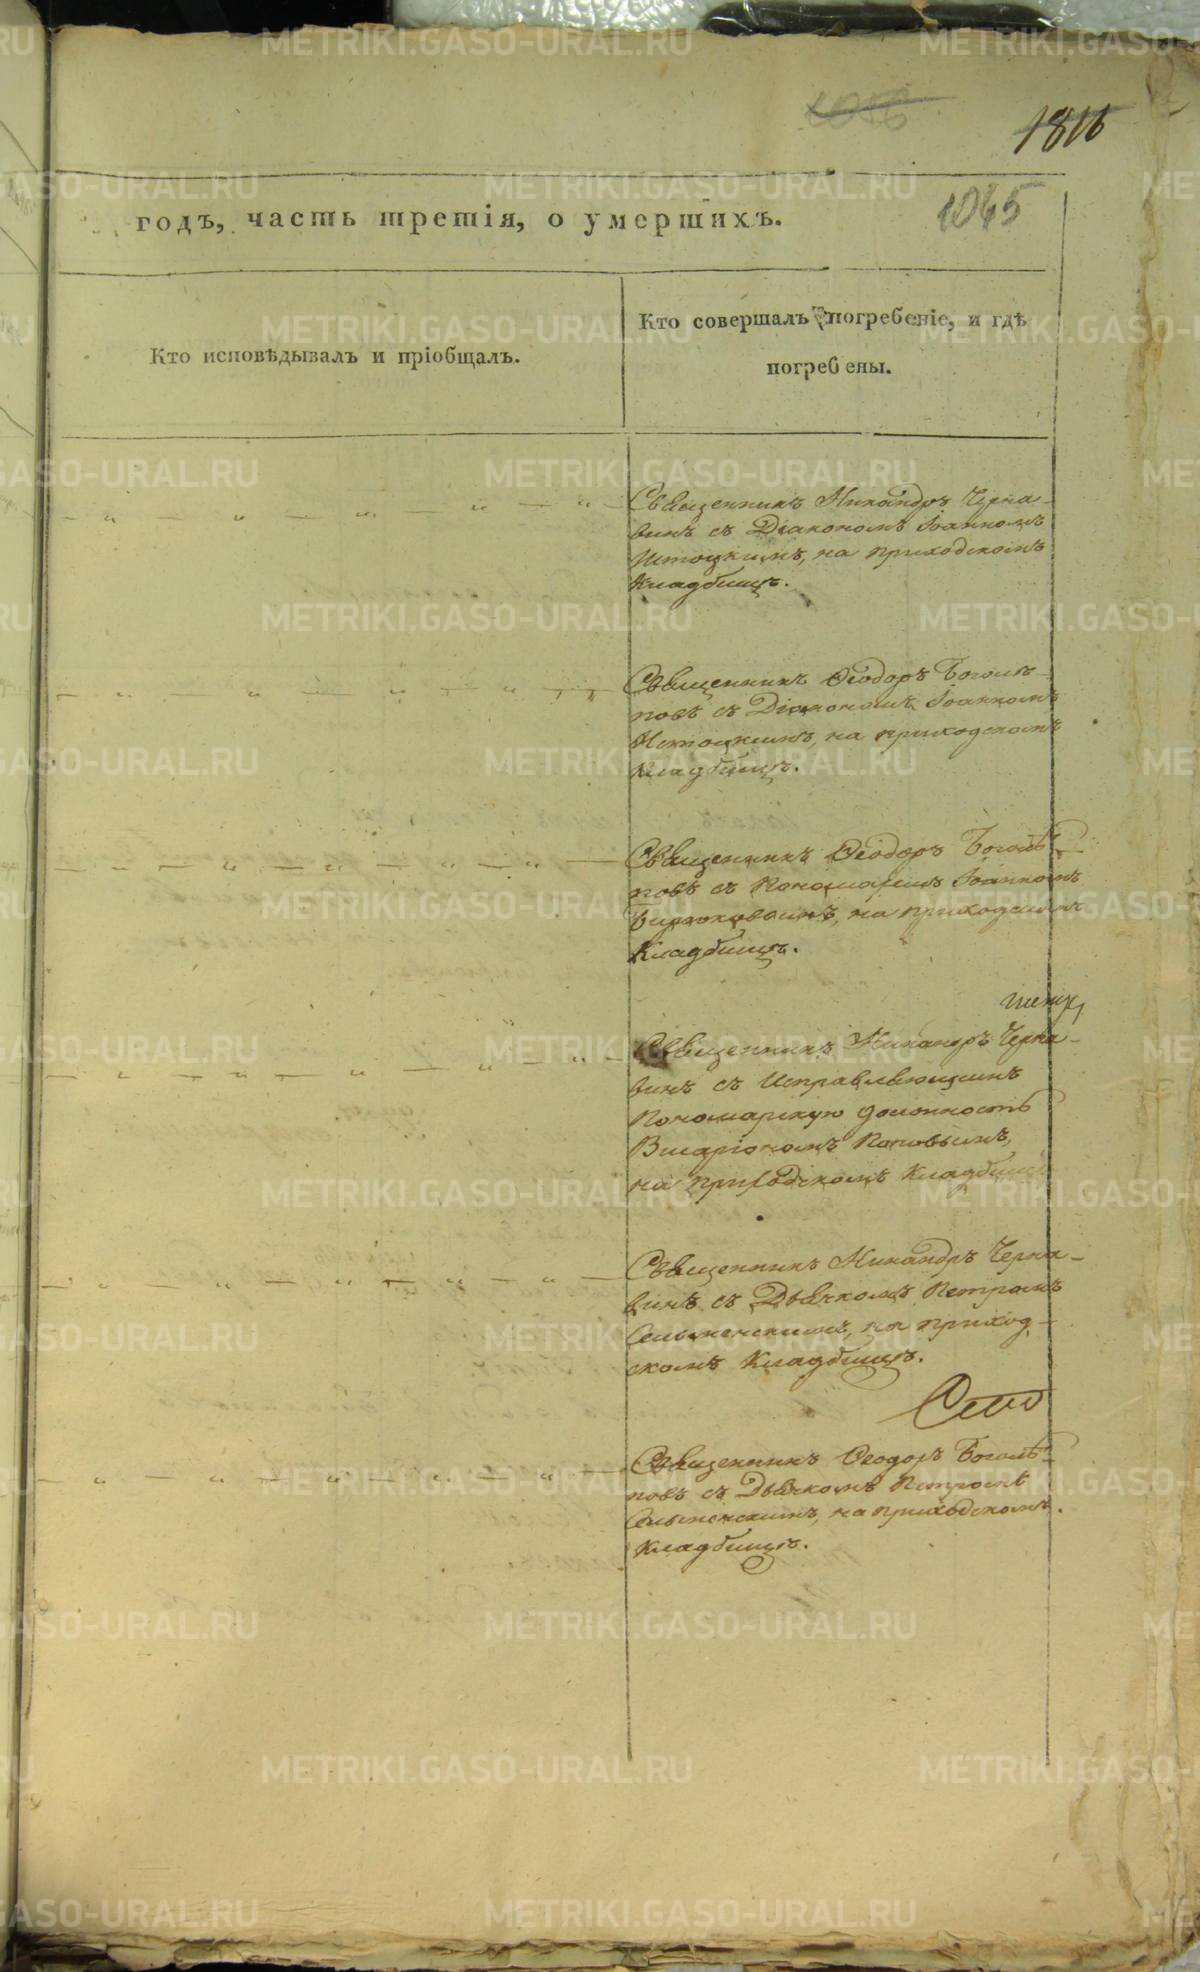 1056
1816
1045
годъ, часть третія, о умершихъ.
Кто исповѣдывалъ и пріобщалъ.
Кто совершалъ погребеніе, и гдѣ
погребены.
Священникъ Никандръ Черна-
винъ съ Діакономъ Іоанномъ
Истоцкимъ, на приходскомъ
Кладбищѣ.
Священникъ Ѳеодоръ Боголѣ-
повъ съ Діакономъ Іоанномъ
Истоцкимъ, на приходскомъ
Кладбищѣ.
Священникъ Ѳеодоръ Боголѣ-
повъ съ Пономаремъ Іоанномъ
Бирюковымъ, на приходскомъ
Кладбищѣ.
Священникъ Никандръ Черна-
винъ съ Исправляющимъ
Пономарскую должность
Виссаріономъ Поповымъ,
на приходскомъ Кладбищѣ
Священникъ Никандръ Черна-
винъ съ Дьячкомъ Петромъ
на приход-
скомъ Кладбищѣ.
Священникъ Ѳеодоръ Боголѣ-
повъ съ Дьячкомъ Петромъ
на приходскомъ.
Кладбищѣ.
METRIKI.GASO-URAL.RU